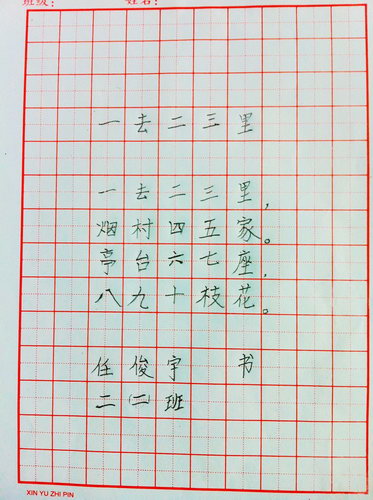 班级： 姓名：
一去二三里
一去二三里，
烟村四五家。
亭台六七座，
八九十枝花。
任俊宇 书
二（二）班
XIN YU ZHI PIN